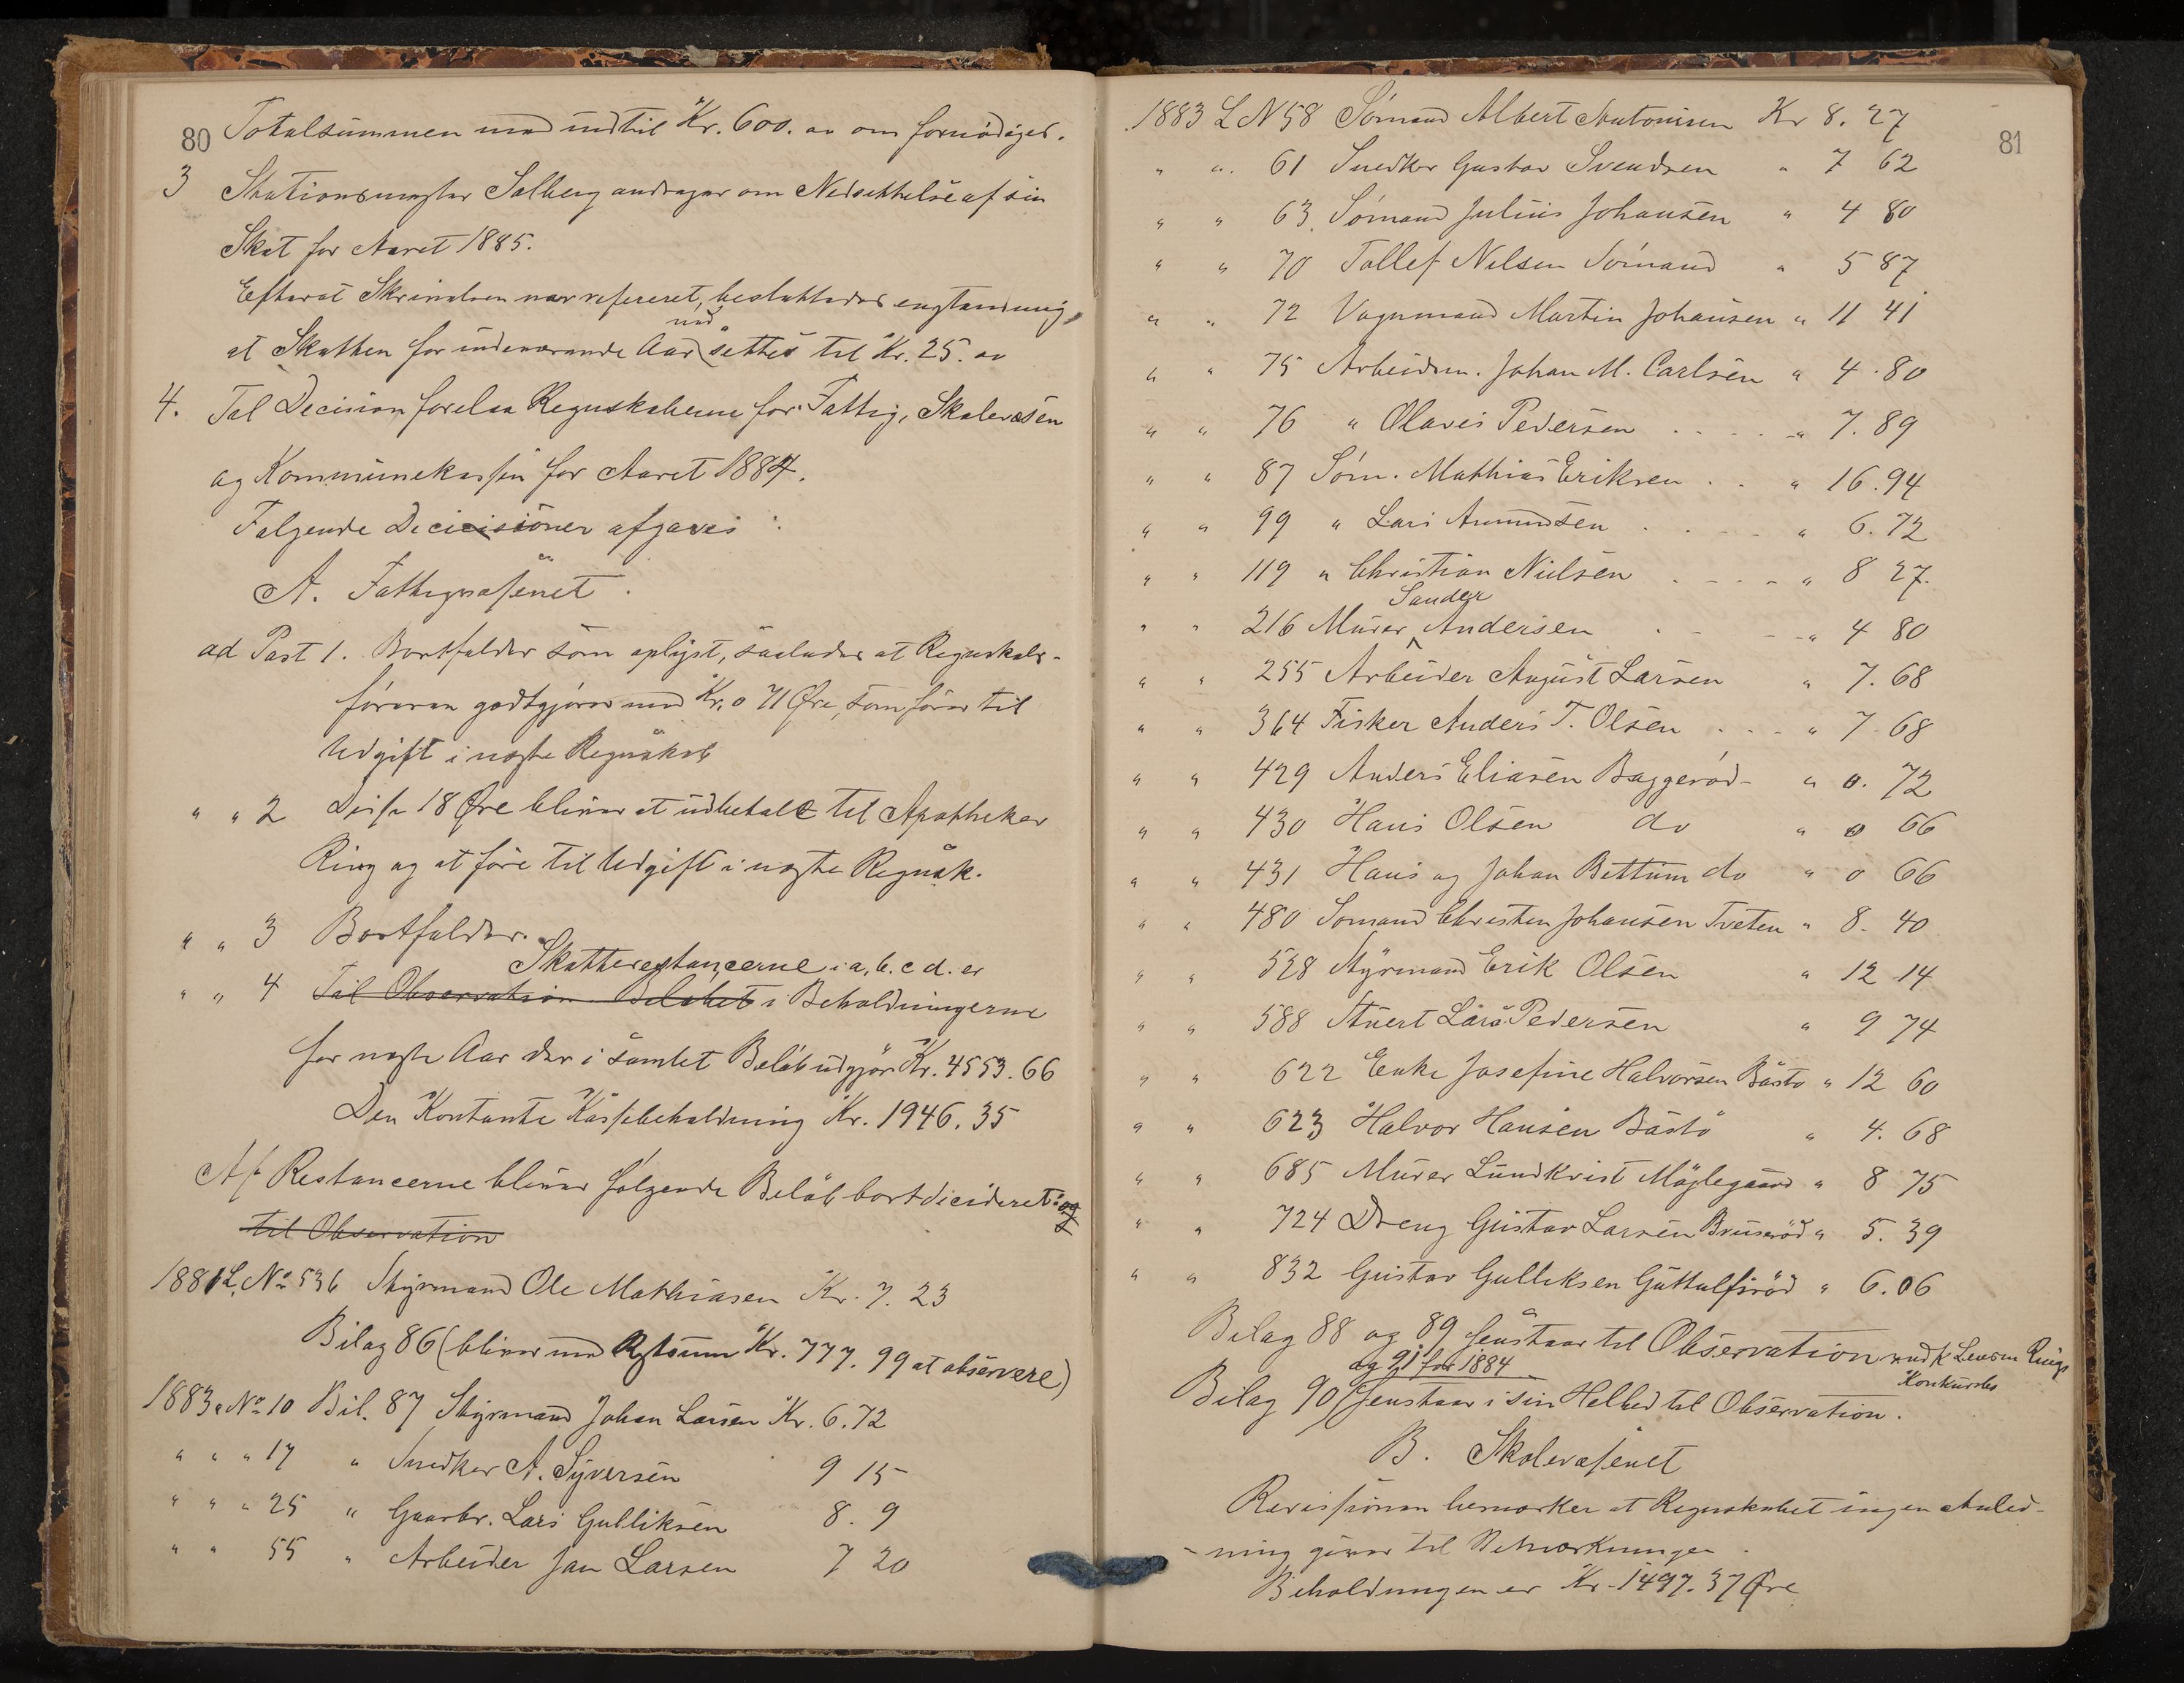 80
Totalsummen med indtil Kr. 600.00 om fornødiges.
3 Stationsmester Solberg andrager om Nedsættelse af sin
Skat for Aaret 1885.
Efterat Skrivelsen var refereret, besluttedes enstemmig,
at Skatten for indeværende Aar nedsettes til Kr. 25.00
4. Til Decision forelaa Regnskaberne for Fattig, Skolevæsen
og Kommunekassen for Aaret 1884.
Følgende Decicisioner afgaves:
A. Fattigvæsenet.
ad Post 1. Bortfalder som oplyst, saaledes at Regnskabs-
føreren godtgjøres med Kr. 0 71 Øre, som føres til
Udgift i næste Regnskab
" " 2 Disse 18 Øre bliver at udbetale til Apotheker
Ring og at føre til Udgift i næste Regnsk.
" " 3 Bortfalder.
Skatterestancerne i a, b. c d. er
" " 4 Til Observation Beløbet i Beholdningerne
for næste Aar der i samlet Beløb udgjør Kr. 4553.66
Den Kontante Kassebeholdning Kr. 1946.35
Af Restancerne bliver følgende Beløb bortdicideret: og
til Observation
1881 L. No 536 Styrmand Ole Mathiasen Kr. 7.23
Bilag 86 (bliver med Kr. 777.99 at observere)
1883 " No 10 Bil. 87 Styrmand Johan Larsen Kr. 6.72
" " " 17 " Snedker A. Syversen 9 15
" " " 25 " Gaarbr. Lars Gulliksen 8. 9
" " 55 " Arbeider Jan Larsen 7 20
81
1883 L N 58 Sømand Albert Antonisen Kr 8. 27
" " 61 Snedker Gustav Svendsen " 7 62
" " 63. Sømand Julius Johansen " 4 80
" " 70 Tollef Nilsen Sømand " 5 87
" " 72 Vognmand Martin Johansen " 11 41
" " 75 Arbeidsm. Johan M. Carlsen " 4.80
" " 76 " Olaves Pedersen " 7.89
" " 87 Søm. Mathias Eriksen " 16.94
" " 99 " Lars Amundsen " 6.72
" " 119 " Christian Nielsen " 8 27.
Sander
" " 216 Murer Andersen " 4 80
" " 255 Arbeider August Larsen " 7.68
" " 364 Fisker Anders T. Olsen " 7.68
" " 429 Anders Eliasen Baggerød " 0.72
" " 430 Hans Olsen do " 0 66
" " 431 Hans og Johan Bettum do " 0 66
" " 480 Sømand Christen Johansen Tveten " 8. 40
" " 528 Styrmand Erik Olsen " 12 14
" " 588 Stuert Lars Pedersen " 9 74
" " 622 Enke Josefine Halvorsen Bastø " 12 60
" " 623 Halvor Hansen Bastø " 4. 68
" " 685 Murer Lundkvist Møglegaard " 8 75
" " 724 Dreng Gustav Larsen Bruserød " 5. 39
" " 832 Gustav Gulliksen Guttulfsrød " 6.06
Bilag 88 og 89 henstaar til Observation Lensm Rings
Konkursbo
og 91 for 1884
Bilag 90 henstaar i sin Helhed til Observation.
B. Skolevæsenet
Revisionen bemærker at Regnskabet ingen Anled-
-ning giver til Bemærkninger.
Beholdningen er Kr. 1497.37 Øre